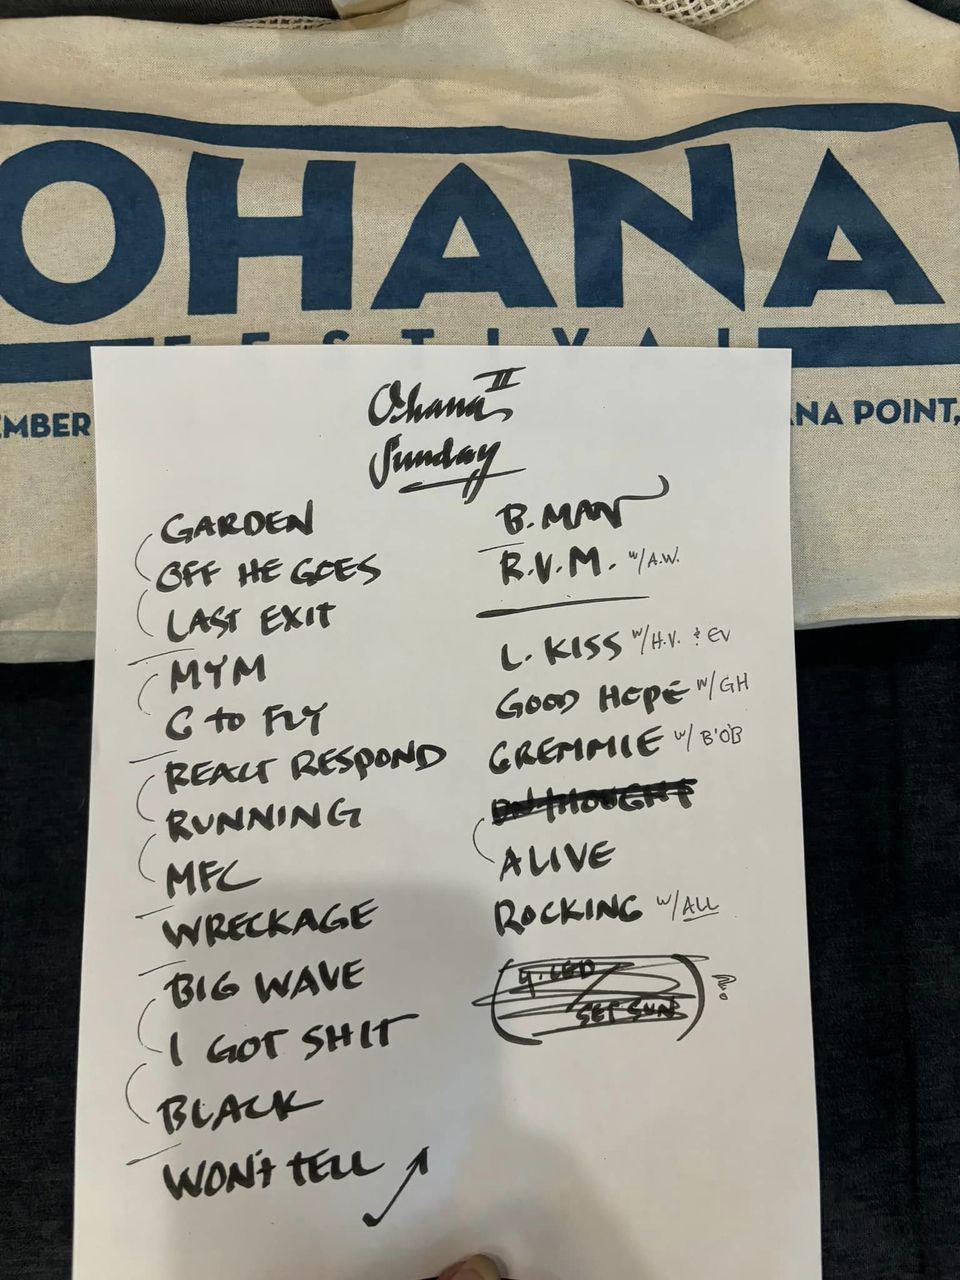 OHANA
FESTIVAL
EMBER
ANA POINT,
Ohana II
Sunday
GARDEN
OFF HE GOES
LAST EXIT
MYM
G to FLY
REACT RESPOND
RUNNING
MFC
WRECKAGE
BIG WAVE
I GOT SHIT
BLACK
WON'T TELL
B. MAN
R.V.M. w/A.W.
L. KISS w/H.V. & EV
GOOD HOPE w/GH
GREMMIE w/ B'OB
ALIVE
ROCKING w/ALL
SET SUN
?